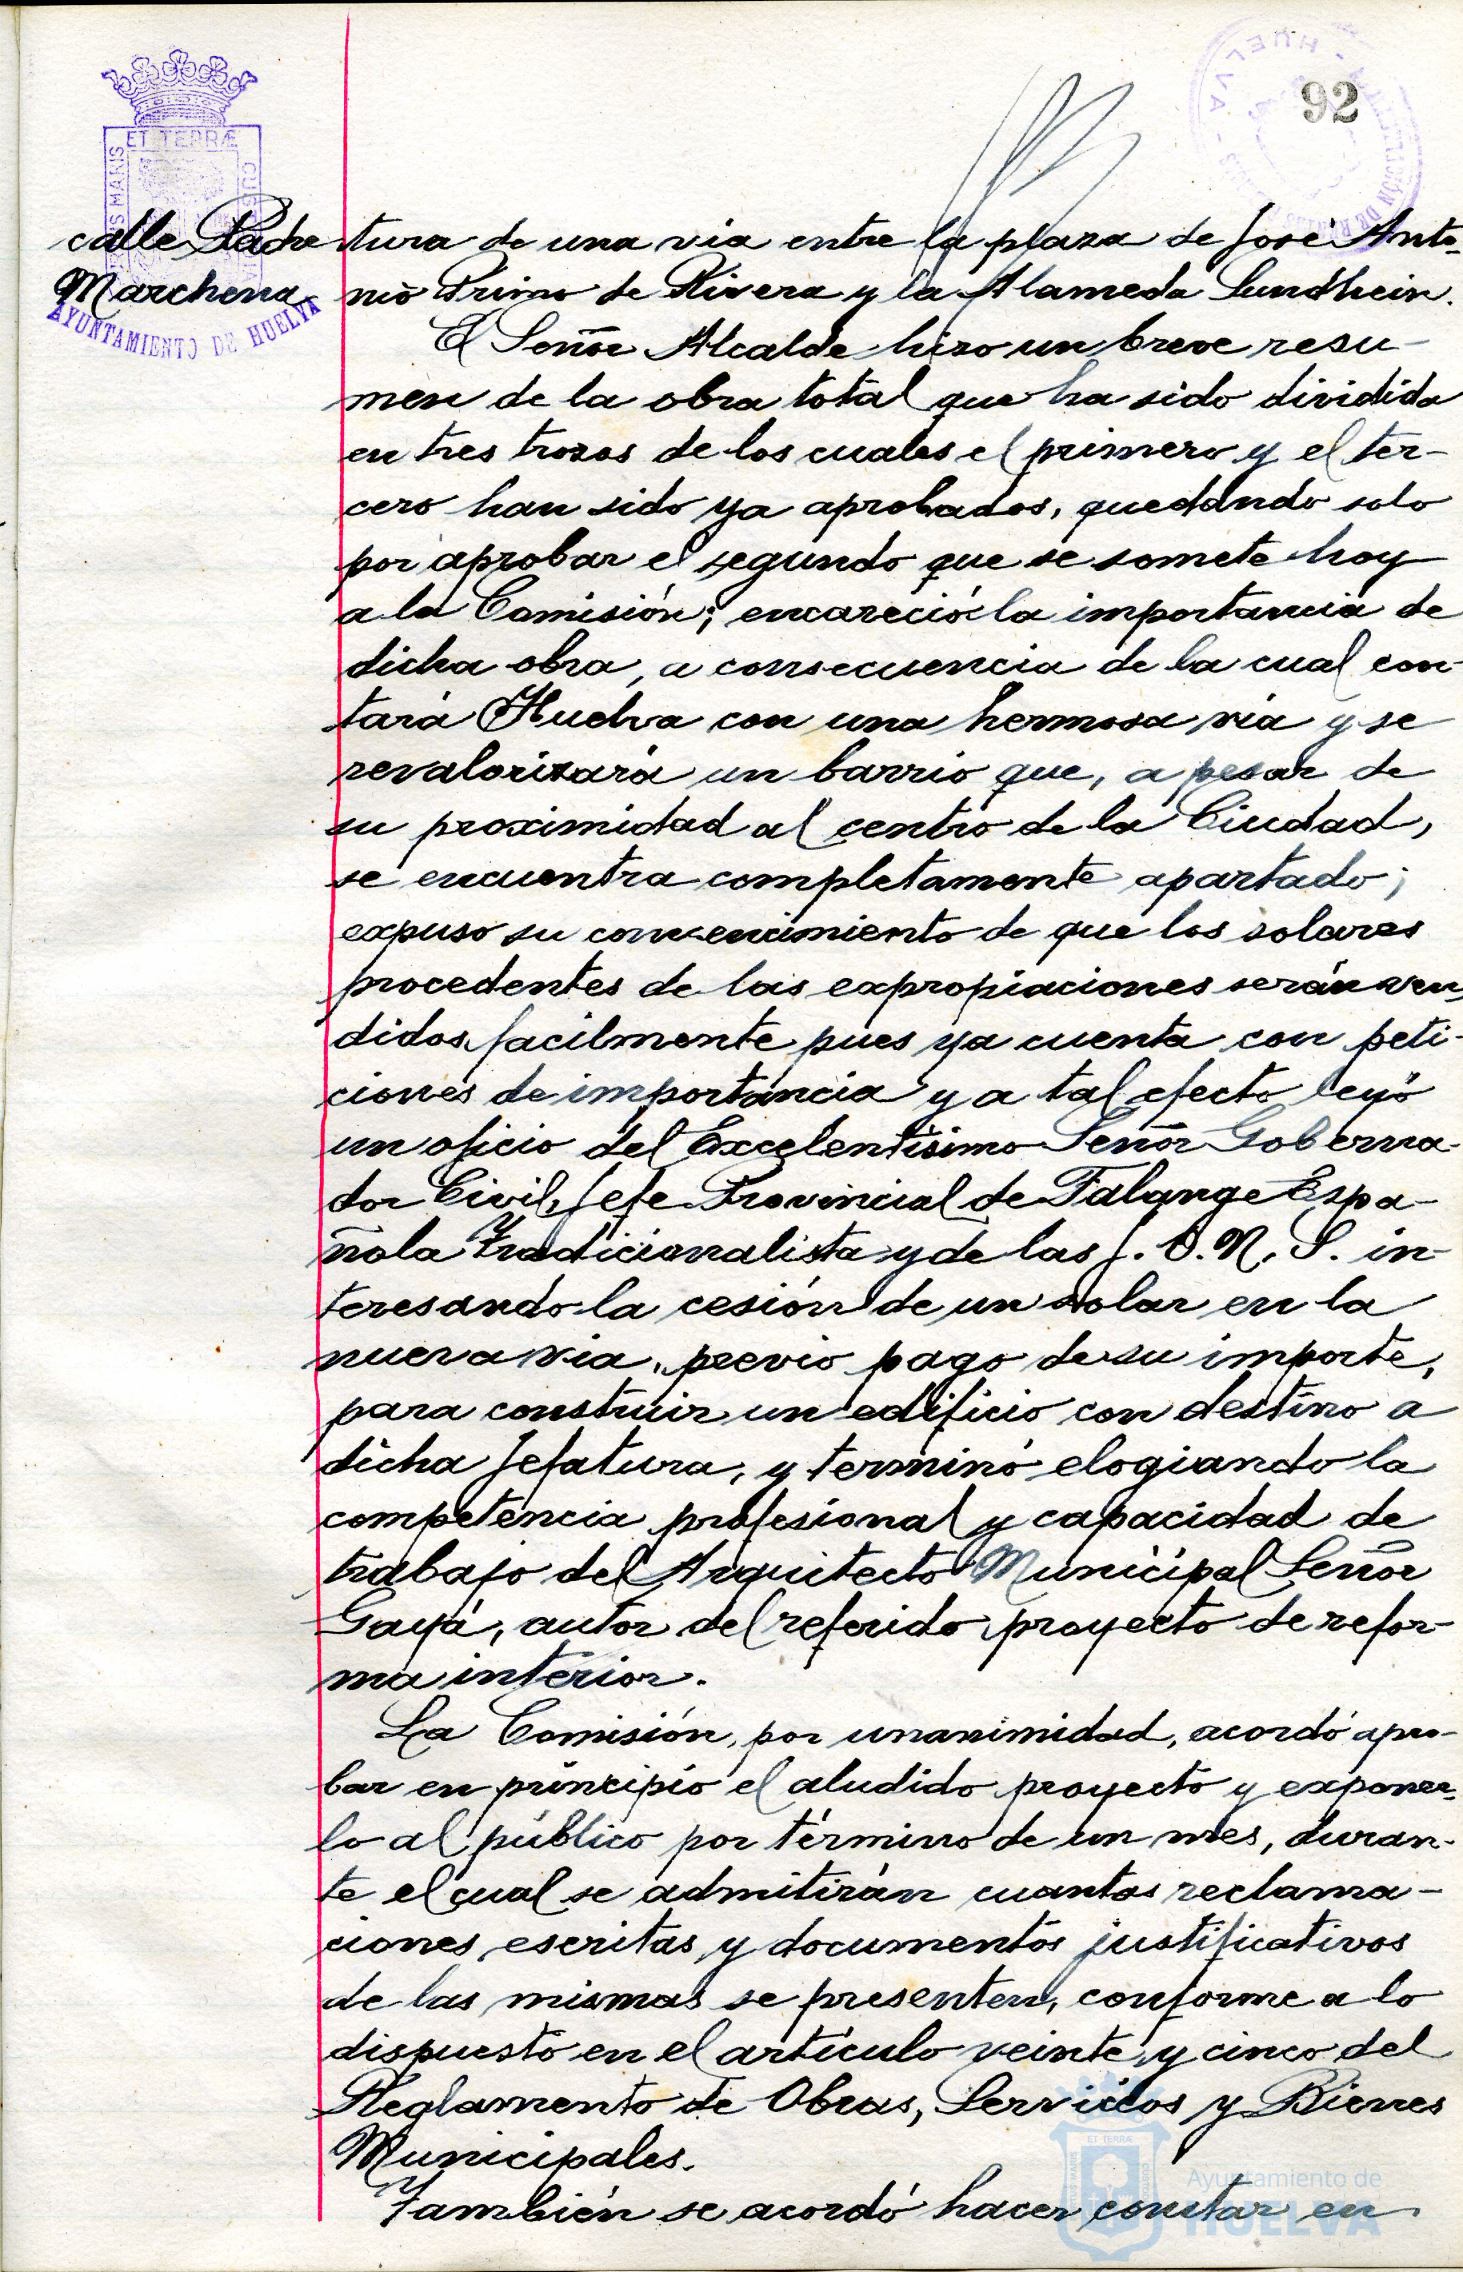 92
HUELVA
ET TERRÆ
AYUNTAMIENTO DE HUELVA
calle Padre
Marchena
tura de una via entre la plaza de José Anto-
nio Primo de Rivera y la Alameda Sundhein.
El Señor Alcalde hizo un breve resu-
men de la obra total que ha sido dividida
en tres trozos de los cuales el primero y el ter-
cero han sido ya aprobados, quedando solo
por aprobar el segundo que se somete hoy
a la Comisión; encareció la importancia de
dicha obra, a consecuencia de la cual con-
tará Huelva con una hermosa vía y se
revalorizará un barrio que, a pesar de
su proximidad al centro de la Ciudad,
se encuentra completamente apartado;
expuso su convencimiento de que los solares
procedentes de las expropiaciones serán ven-
didos facilmente pues ya cuenta con peti-
ciones de importancia y a tal efecto leyó
un oficio del Excelentísimo Señor Goberna-
dor Civil, Jefe Provincial de Falange Espa-
ñola Tradicionalista y de las J. O. N. S. in-
teresando la cesión de un solar en la
nueva via, previo pago de su importe,
para construir un edificio con destino a
dicha Jefatura, y terminó elogiando la
competencia profesional y capacidad de
trabajo del Arquitecto Municipal Señor
Gayá, autor del referido proyecto de refor-
ma interior.
La Comisión, por unanimidad, acordó apro-
bar en principio el aludido proyecto y exponer-
lo al público por término de un mes, duran-
te el cual se admitirán cuantas reclama-
ciones escritas y documentos justificativos
de las mismas se presenten, conforme a lo
dispuesto en el artículo veinte y cinco del
Reglamento de Obras, Servicios y Bienes
Municipales.
También se acordó hacer constar en
Ayuntamiento de
HUELVA